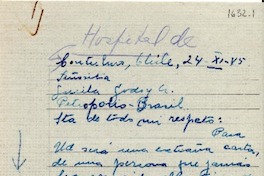 1632.1
Hospital de
Contulmo, Chile, 24-XI-45
Señorita
Lucila Godoy A.
Petropolis-Brasil
Sta de todo mi respeto:
Para
Ud será una extraña carta,
de una persona que jamás